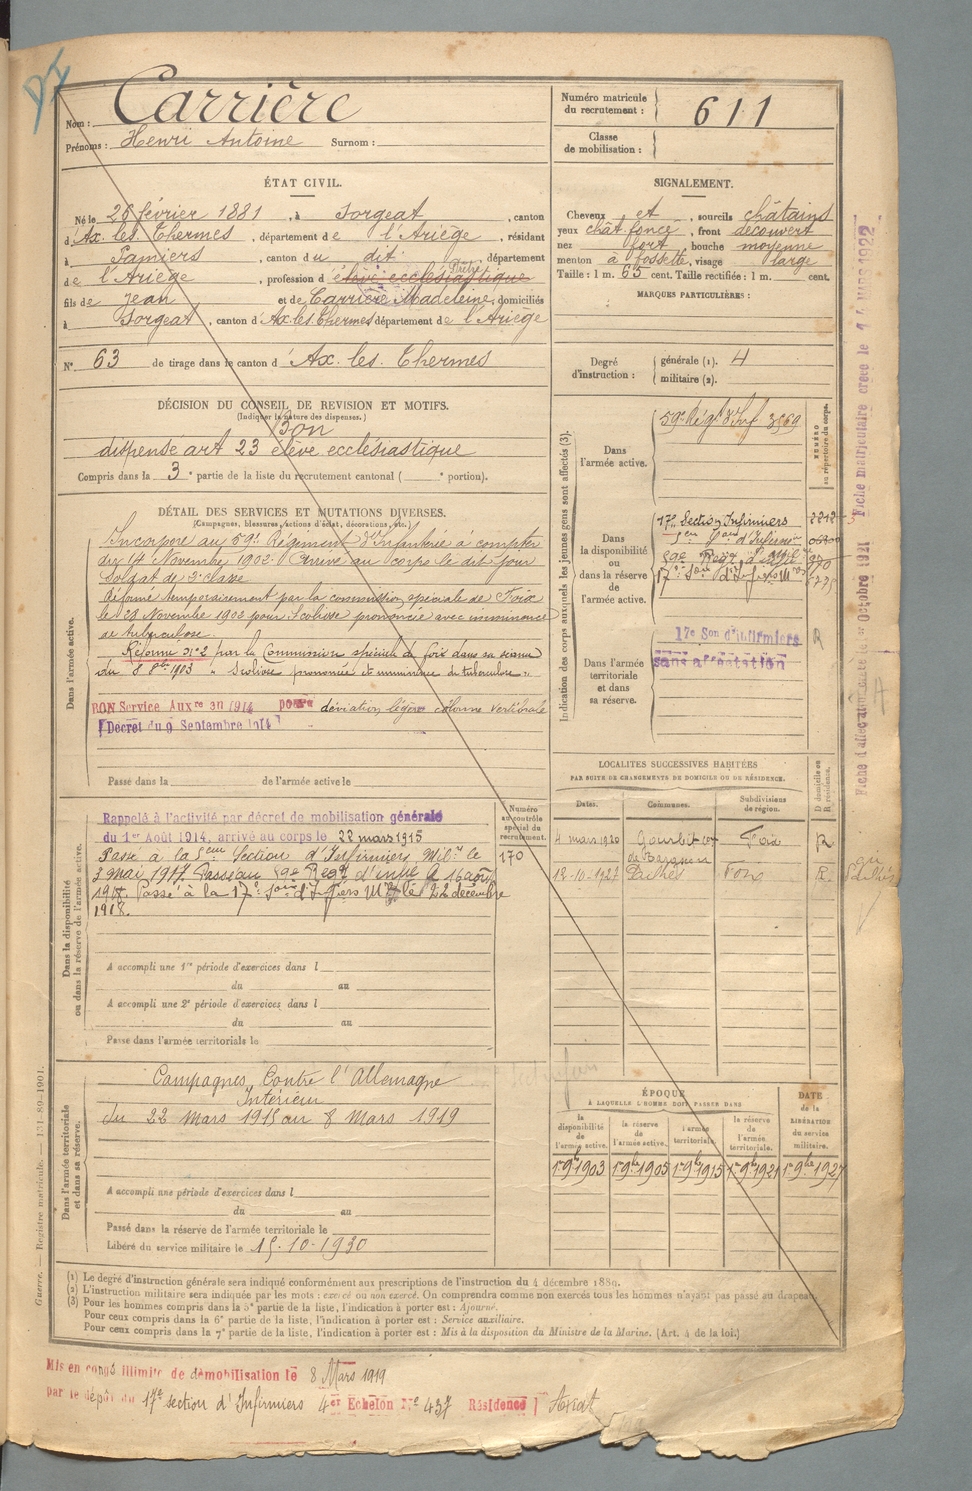 Nom : Carrière
Prénoms : Henri Antoine Surnom :
Numéro matricule du recrutement : 611
Classe de mobilisation :
ÉTAT CIVIL.
Né le 26 février 1881, à Sorgeat, canton
d'Ax. les. Thermes, département de l'Ariège, résidant
à Pamiers, canton du dit département
de l'Ariège, profession d'élève ecclésiastique
fils de Jean et de Carrière Madeleine, domiciliés
à Sorgeat, canton d'Ax. les. Thermes département de l'Ariège
N° 63 de tirage dans le canton d'Ax. les. Thermes
SIGNALEMENT.
Cheveux et, sourcils châtains
yeux chât. foncé, front découvert
nez fort, bouche moyenne
menton à fossette, visage large
Taille : 1 m. 65 cent. Taille rectifiée : 1 m. cent.
MARQUES PARTICULIÈRES :
Degré d'instruction : générale (1). 4
militaire (2).
DÉCISION DU CONSEIL DE REVISION ET MOTIFS.
(Indiquer la nature des dispenses.)
Bon
dispensé art 23 élève ecclésiastique
Compris dans la 3e partie de la liste du recrutement cantonal ( e portion).
DÉTAIL DES SERVICES ET MUTATIONS DIVERSES.
(Campagnes, blessures, actions d'éclat, décorations, etc.)
Dans l'armée active.
Incorporé au 59e Régiment d'Infanterie à compter
du 14 Novembre 1902. Arrivé au corps le dit jour
Soldat de 2e classe
Réformé temporairement par la commission spéciale de Foix
le 28 Novembre 1902 pour Scoliose prononcée avec imminence
de tuberculose.
Réforme n° 2 par la Commission spéciale de Foix dans sa séance
du 8 8bre 1903 " Scoliose prononcée et imminence de tuberculose "
BON Service Auxre en 1914 pour déviation légère colonne vertébrale
Décret du 9 Septembre 1914
Passé dans la de l'armée active le
Indication des corps auxquels les jeunes gens sont affectés (3).
NUMÉRO au répertoire du corps.
Dans l'armée active.
59e Régt d'Inf 3569
Dans la disponibilité ou dans la réserve de l'armée active.
17e Section Infirmiers
Dans l'armée territoriale et dans sa réserve.
17e Son d'Infirmiers R
sans affectation
Fiche d'affectation créée le 1er Octobre 1921 Fiche matriculaire créée le 14 MARS 1922
Dans la disponibilité ou dans la réserve de l'armée active.
Numéro au contrôle spécial du recrutement.
170
Rappelé à l'activité par décret de mobilisation générale
du 1er Août 1914, arrivé au corps le 22 mars 1915
Passé à la 5eme Section d'Infirmiers Milres le
3 mai 1917 Passé au 59e Regt d'infie le 16 août
Passé à la 17e Son d'Infiers Mres le 22 décembre
1918.
A accompli une 1re période d'exercices dans l
du au
A accompli une 2e période d'exercices dans l
du au
Passé dans l'armée territoriale le
LOCALITÉS SUCCESSIVES HABITÉES
PAR SUITE DE CHANGEMENTS DE DOMICILE OU DE RÉSIDENCE.
Dates. Communes. Subdivisions de région. D domicile ou R résidence.
4 mars 1920 Foix R
12-10-1927 Pailhès Foix R
Dans l'armée territoriale et dans sa réserve.
Campagnes Contre l'Allemagne
Intérieur
du 22 Mars 1915 au 8 Mars 1919
A accompli une période d'exercices dans l
du au
Passé dans la réserve de l'armée territoriale le
Libéré du service militaire le 15-10-1930
ÉPOQUE
À LAQUELLE L'HOMME DOIT PASSER DANS
la disponibilité de l'armée active. la réserve de l'armée active. l'armée territoriale. la réserve de l'armée territoriale. DATE de la LIBÉRATION du service militaire.
1 9bre 1903 1 9bre 1905 1 9bre 1915 1 9bre 1921 1 9bre 1927
(1) Le degré d'instruction générale sera indiqué conformément aux prescriptions de l'instruction du 4 décembre 1889.
(2) L'instruction militaire sera indiquée par les mots : exercé ou non exercé. On comprendra comme non exercés tous les hommes n'ayant pas passé au drapeau.
(3) Pour les hommes compris dans la 5e partie de la liste, l'indication à porter est : Ajourné.
Pour ceux compris dans la 6e partie de la liste, l'indication à porter est : Service auxiliaire.
Pour ceux compris dans la 7e partie de la liste, l'indication à porter est : Mis à la disposition du Ministre de la Marine. (Art. 4 de la loi.)
Guerre. — Registre matricule. — 131-89-1901.
Mis en congé illimité de démobilisation le 8 Mars 1919
par le dépôt du 17e section d'Infirmiers 4er Echelon N° 437 Résidence